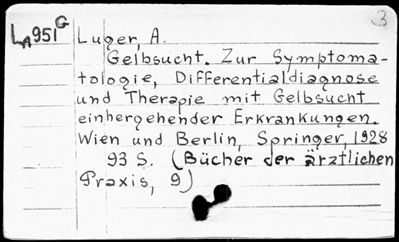 3
LA951G Luger, A.
Gelbsucht. Zur Symptoma-
tologie, Differentialdiagnose
und Therapie mit Gelbsucht
einhergehender Erkrankungen.
Wien und Berlin, Springer, 1928
93 S. (Bücher der ärztlichen
Praxis, 9)